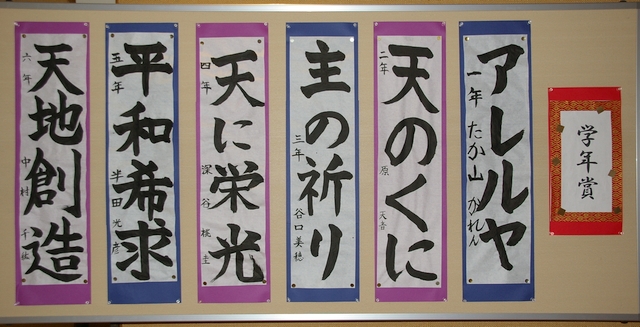 学年賞
アレルヤ
一年 たか山 かれん
天のくに
二年 原 天音
主の祈り
三年 谷口美穂
天に栄光
四年 深谷 桃圭
平和希求
五年 半田 光彦
天地創造
六年 中村 千紘